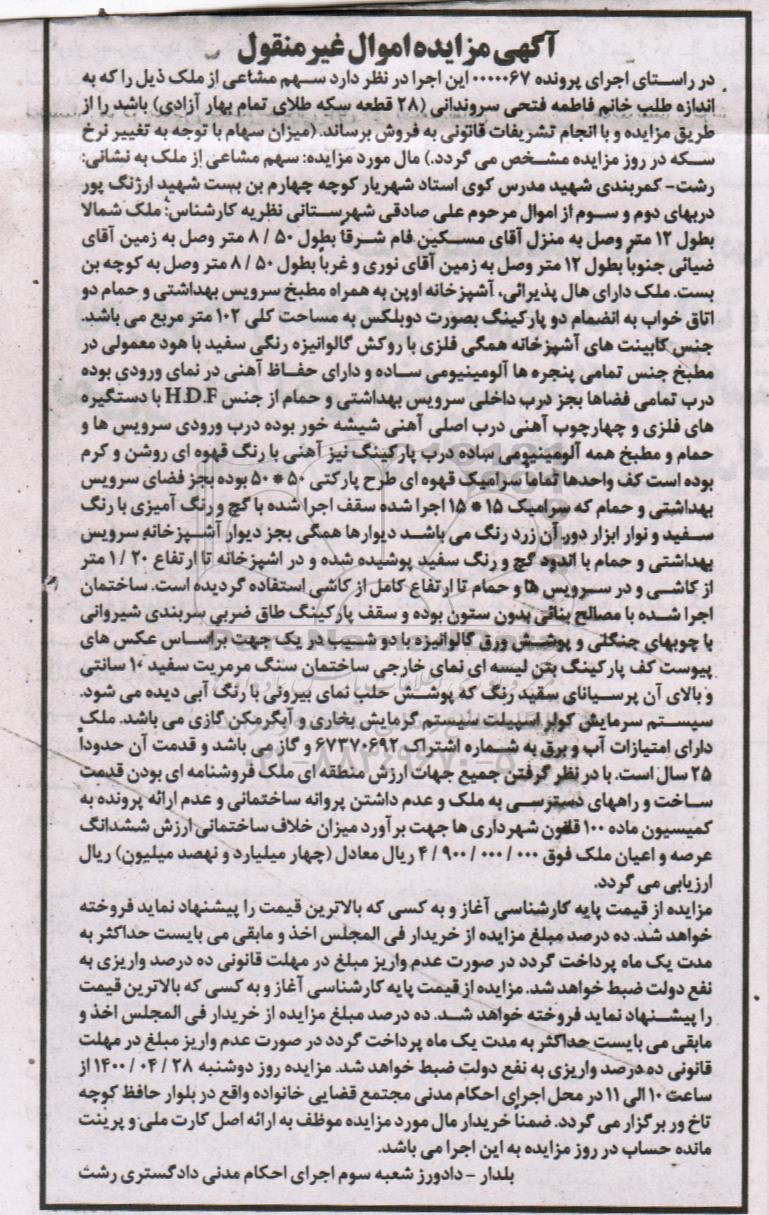 آگهی مزایده اموال غیر منقول
در راستای اجرای پرونده ۰۰۰۰۰۶۷ این اجرا در نظر دارد سهم مشاعی از ملک ذیل را که به
اندازه طلب خانم فاطمه فتحی سروندانی (۲۸ قطعه سکه طلای تمام بهار آزادی) باشد را از
طریق مزایده و با انجام تشریفات قانونی به فروش برساند. (میزان سهام با توجه به تغییر نرخ
سکه در روز مزایده مشخص می گردد.) مال مورد مزایده: سهم مشاعی از ملک به نشانی:
رشت- کمربندی شهید مدرس کوی استاد شهریار کوچه چهارم بن بست شهید ارژنگ پور
دربهای دوم و سوم از اموال مرحوم علی صادقی شهرستانی نظریه کارشناس: ملک شمالا
بطول ۱۲ متر وصل به منزل آقای مسکین فام شرقاً بطول ۵۰ / ۸ متر وصل به زمین آقای
ضیائی جنوبا بطول ۱۲ متر وصل به زمین آقای نوری و غرباً بطول ۵۰ / ۸ متر وصل به کوچه بن
بست. ملک دارای هال پذیرائی، آشپزخانه اوپن به همراه مطبخ سرویس بهداشتی و حمام دو
اتاق خواب به انضمام دو پارکینگ بصورت دوبلکس به مساحت کلی ۱۰۲ متر مربع می باشد.
جنس کابینت های آشپزخانه همگی فلزی با روکش گالوانیزه رنگی سفید با هود معمولی در
مطبخ جنس تمامی پنجره ها آلومینیومی ساده و دارای حفاظ آهنی در نمای ورودی بوده
درب تمامی فضاها بجز درب داخلی سرویس بهداشتی و حمام از جنس H.D.F با دستگیره
های فلزی و چهارچوب آهنی درب اصلی آهنی شیشه خور بوده درب ورودی سرویس ها و
حمام و مطبخ همه آلومینیومی ساده درب پارکینگ نیز آهنی با رنگ قهوه ای روشن و کرم
بوده است کف واحدها تماماً سرامیک قهوه ای طرح پارکتی ۵۰ * ۵۰ بوده بجز فضای سرویس
بهداشتی و حمام که سرامیک ۱۵ * ۱۵ اجرا شده سقف اجرا شده با گچ و رنگ آمیزی با رنگ
سفید و نوار ابزار دور آن زرد رنگ می باشد دیوارها همگی بجز دیوار آشپزخانه سرویس
بهداشتی و حمام با اندود گچ و رنگ سفید پوشیده شده و در اشپزخانه تا ارتفاع ۲۰ / ۱ متر
از کاشی و در سرویس ها و حمام تا ارتفاع کامل از کاشی استفاده گردیده است. ساختمان
اجرا شده با مصالح بنائی بدون ستون بوده و سقف پارکینگ طاق ضربی سربندی شیروانی
با چوبهای جنگلی و پوشش ورق گالوانیزه با دو شیب در یک جهت براساس عکس های
پیوست کف پارکینگ بتن لیسه ای نمای خارجی ساختمان سنگ مرمریت سفید ۱۰ سانتی
و بالای آن پرسیانای سفید رنگ که پوشش حلب نمای بیرونی با رنگ آبی دیده می شود.
سیستم سرمایش کولر اسپیلت سیستم گرمایش بخاری و آبگرمکن گازی می باشد. ملک
دارای امتیازات آب و برق به شماره اشتراک ۶۷۳۷۰۶۹۲ و گاز می باشد و قدمت آن حدوداً
۲۵ سال است. با در نظر گرفتن جمیع جهات ارزش منطقه ای ملک قولنامه ای بودن قدمت
ساخت و راههای دسترسی به ملک و عدم داشتن پروانه ساختمانی و عدم ارائه پرونده به
کمیسیون ماده ۱۰۰ قانون شهرداری ها جهت برآورد میزان خلاف ساختمانی ارزش ششدانگ
عرصه و اعیان ملک فوق ۰۰۰ / ۰۰۰ / ۹۰۰ / ۴ ریال معادل (چهار میلیارد و نهصد میلیون) ریال
ارزیابی می گردد.
مزایده از قیمت پایه کارشناسی آغاز و به کسی که بالاترین قیمت را پیشنهاد نماید فروخته
خواهد شد. ده درصد مبلغ مزایده از خریدار فی المجلس اخذ و مابقی می بایست حداکثر به
مدت یک ماه پرداخت گردد در صورت عدم واریز مبلغ در مهلت قانونی ده درصد واریزی به
نفع دولت ضبط خواهد شد. مزایده از قیمت پایه کارشناسی آغاز و به کسی که بالاترین قیمت
را پیشنهاد نماید فروخته خواهد شد. ده درصد مبلغ مزایده از خریدار فی المجلس اخذ و
مابقی می بایست حداکثر به مدت یک ماه پرداخت گردد در صورت عدم واریز مبلغ در مهلت
قانونی ده درصد واریزی به نفع دولت ضبط خواهد شد. مزایده روز دوشنبه ۲۸ / ۰۴ / ۱۴۰۰ از
ساعت ۱۰ الی ۱۱ در محل اجرای احکام مدنی مجتمع قضایی خانواده واقع در بلوار حافظ کوچه
تاخ ور برگزار می گردد. ضمناً خریدار مال مورد مزایده موظف به ارائه اصل کارت ملی و پرینت
مانده حساب در روز مزایده به این اجرا می باشد.
بلدار - دادورز شعبه سوم اجرای احکام مدنی دادگستری رشت